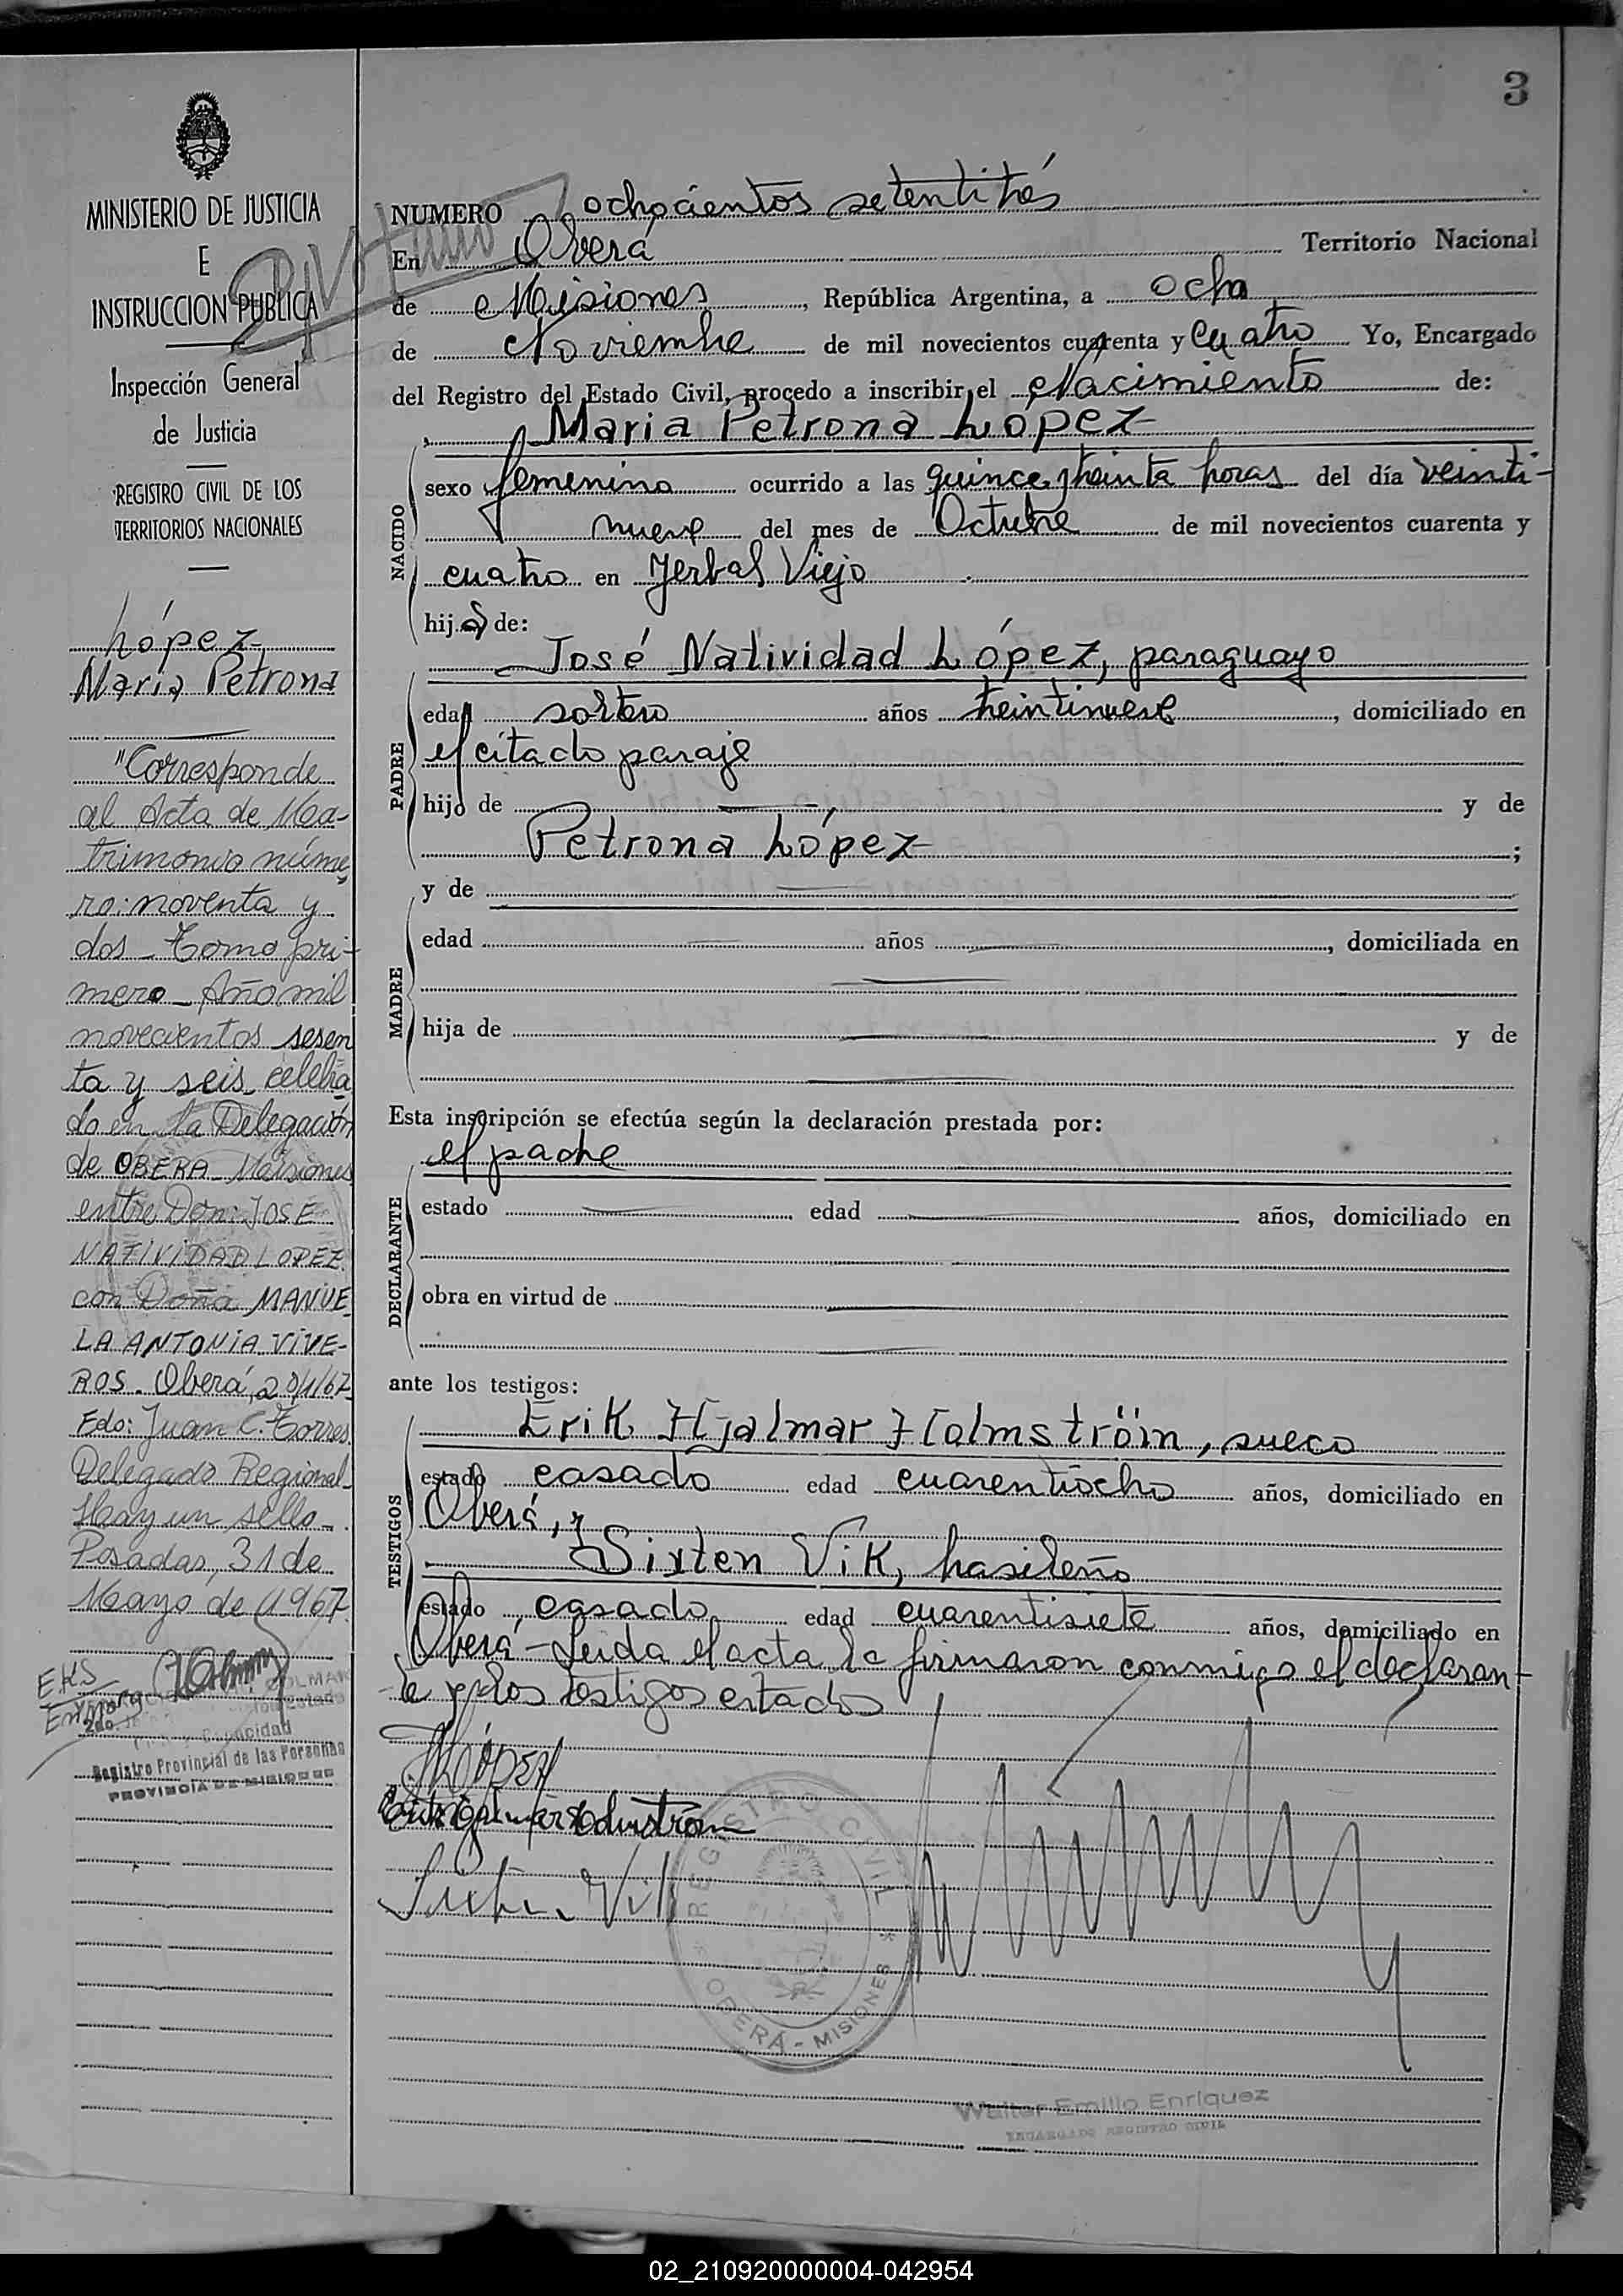 3
MINISTERIO DE JUSTICIA
E
INSTRUCCION PUBLICA
Inspección General
de Justicia
REGISTRO CIVIL DE LOS
TERRITORIOS NACIONALES
López
María Petrona
"Corresponde
al Acta de Ma-
trimonio núme
ro: noventa y
dos - Tomo pri-
mero - Año mil
novecientos sesen
ta y seis celebra
do en la Delegación
de OBERA Misiones
entre Don: JOSE
NATIVIDAD LOPEZ
con Doña MANUE
LA ANTONIA VIVE-
ROS. Oberá, 20/1/67
Fdo: Juan C. Torres
Delegado Regional
Hay un sello
Posadas, 31 de
Mayo de 1967
EKS
Registro Provincial de las Personas
PROVINCIA DE MISIONES
NUMERO ochocientos setentitrés
En Oberá Territorio Nacional
de Misiones, República Argentina, a ocho
de Noviembre de mil novecientos cuarenta y cuatro Yo, Encargado
del Registro del Estado Civil, procedo a inscribir el Nacimiento de:
María Petrona López
NACIDO
sexo femenino ocurrido a las quince y treinta horas del día veinti-
nueve del mes de Octubre de mil novecientos cuarenta y
cuatro en Yerbal Viejo
hija de:
José Natividad López, paraguayo
PADRE
edad soltero años treintinueve, domiciliado en
el citado paraje
hijo de y de
Petrona López ;
y de
MADRE
edad años , domiciliada en
hija de y de
Esta inscripción se efectúa según la declaración prestada por:
el padre
DECLARANTE
estado edad años, domiciliado en
obra en virtud de
ante los testigos:
TESTIGOS
Erik Hjalmar Holmström, sueco
estado casado edad cuarentiocho años, domiciliado en
Oberá, y
Sixten Vik, brasileño
estado casado edad cuarentisiete años, domiciliado en
Oberá - Leida el acta la firmaron conmigo el declaran-
te y los testigos citados
López
REGISTRO CIVIL
OBERÁ - MISIONES
Walter Emilio Enriquez
ENCARGADO REGISTRO CIVIL
02_210920000004-042954